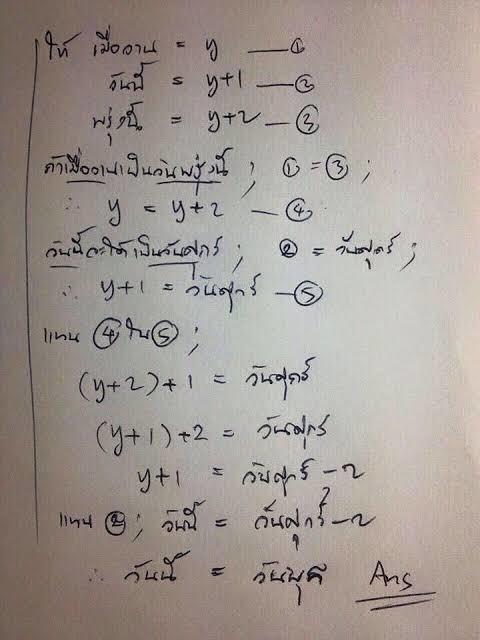 ให้ เมื่อวาน = y —— ①
วันนี้ = y+1 —— ②
พรุ่งนี้ = y+2 — ③
ถ้าเมื่อวานเป็นวันพรุ่งนี้ ; ① = ③ ;
∴ y = y+2 — ④
วันนี้จะได้เป็นวันศุกร์ ; ② = วันศุกร์ ;
∴ y+1 = วันศุกร์ — ⑤
แทน ④ ใน ⑤ ;
(y+2)+1 = วันศุกร์
(y+1)+2 = วันศุกร์
y+1 = วันศุกร์ -2
แทน ② ; วันนี้ = วันศุกร์ -2
∴ วันนี้ = วันพุธ Ans